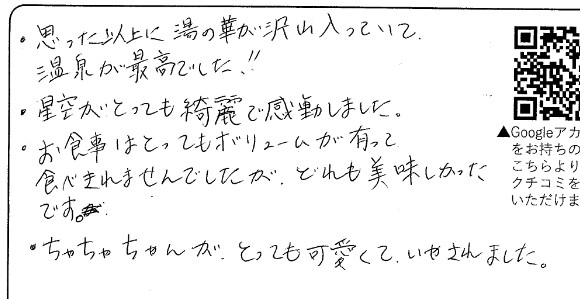 ・思った以上に湯の華が沢山入っていて、
温泉が最高でした、!!
・星空がとっても綺麗で感動しました。
・お食事はとってもボリュームが有って
食べきれませんでしたが、どれも美味しかった
です。
・ちゃちゃちゃんが、とっても可愛くて、いやされました。
▲Googleアカ
をお持ちの
こちらより
クチコミを
いただけま